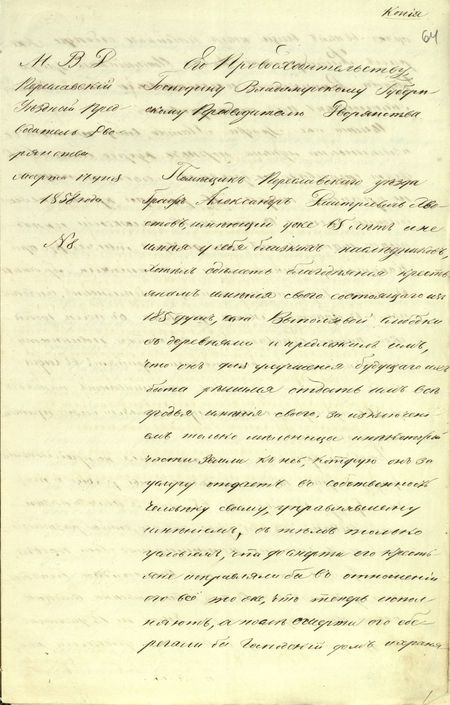 Копія
64
М. В. Д.
Переславскій
Уѣздный Пред
водитель Дво
рянства
Марта 17 дня
1858 года
№ 8
Его Превосходительству
Господину Владимірскому Губерн
скому Предводителю Дворянства
Помѣщикъ Переславскаго уѣзда
Графъ Александръ Дмитріевичъ
имѣющій уже 65 лѣтъ и не
имѣя у себя близкихъ наслѣдниковъ,
сдѣлать благодѣянія кресть
янамъ имѣнія своего состоящаго изъ
185 душъ, слободки
съ деревнями и предложилъ имъ,
что онъ для улучшенія будущаго ихъ
быта рѣшился отдать имъ всѣ
угодья имѣнія своего, за исключені
емъ только мельницы и некоторой
части земли къ ней, которую онъ за
услугу отдаетъ въ собственность
человѣку своему, управлявшему
имѣніемъ, съ тѣмъ только
условіемъ, что до смерти его кресть
яне исправляли бы въ отношеніи
его всё то же, что теперь испол
няютъ, а послѣ смерти его обе
регали бы Господскій домъ и охраня